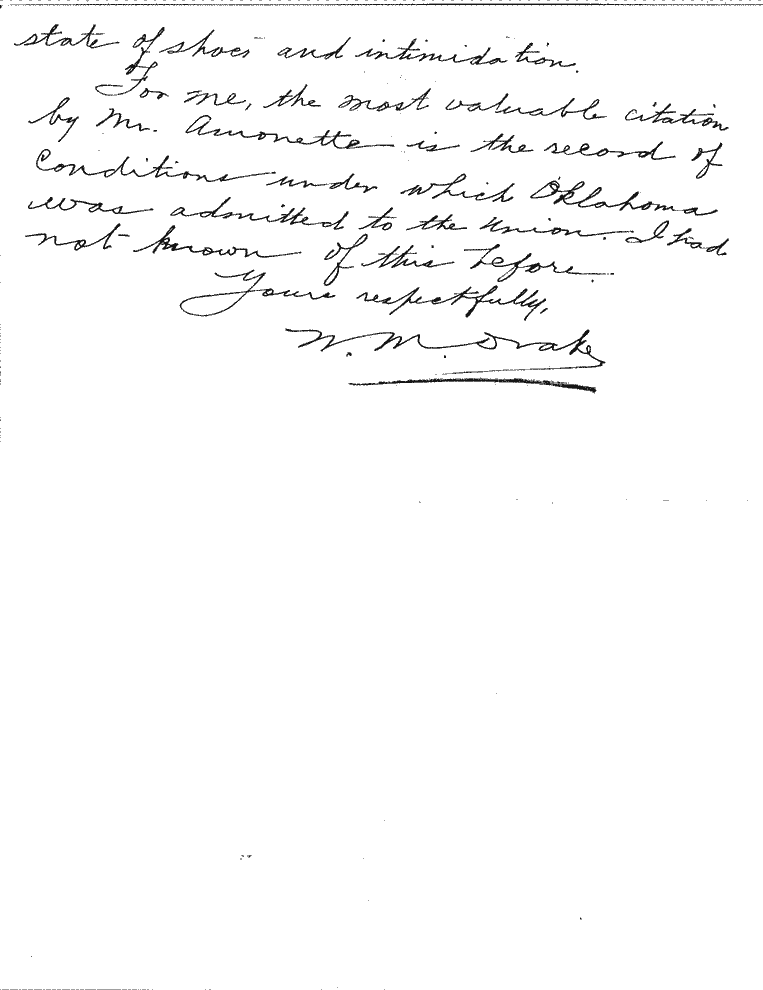 state of shoes and intimidation.
For me, the most valuable citation
by Mr. Amonette is the record of
conditions under which Oklahoma
was admitted to the Union. I had
not known of this before.
Yours respectfully,
W. M. Drake